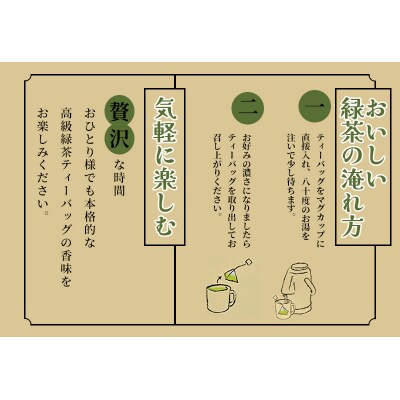 おいしい
緑茶の淹れ方
一
ティーバッグをマグカップに
直接入れ、八十度のお湯を
注いで少し待ちます。
二
お好みの濃さになりましたら
ティーバッグを取り出してお
召し上がりください。
気軽に楽しむ
贅沢な時間
おひとり様でも本格的な
高級緑茶ティーバッグの香味を
お楽しみください。